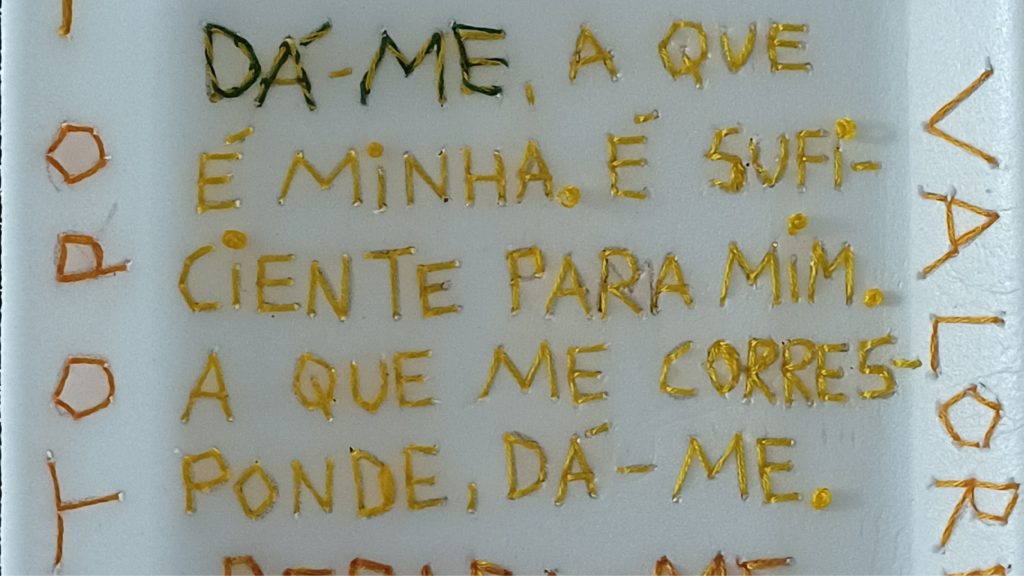 DÁ-ME, A QUE
É MINHA. É SUFI-
CIENTE PARA MIM.
A QUE ME CORRES-
PONDE, DÁ-ME.
VALOR